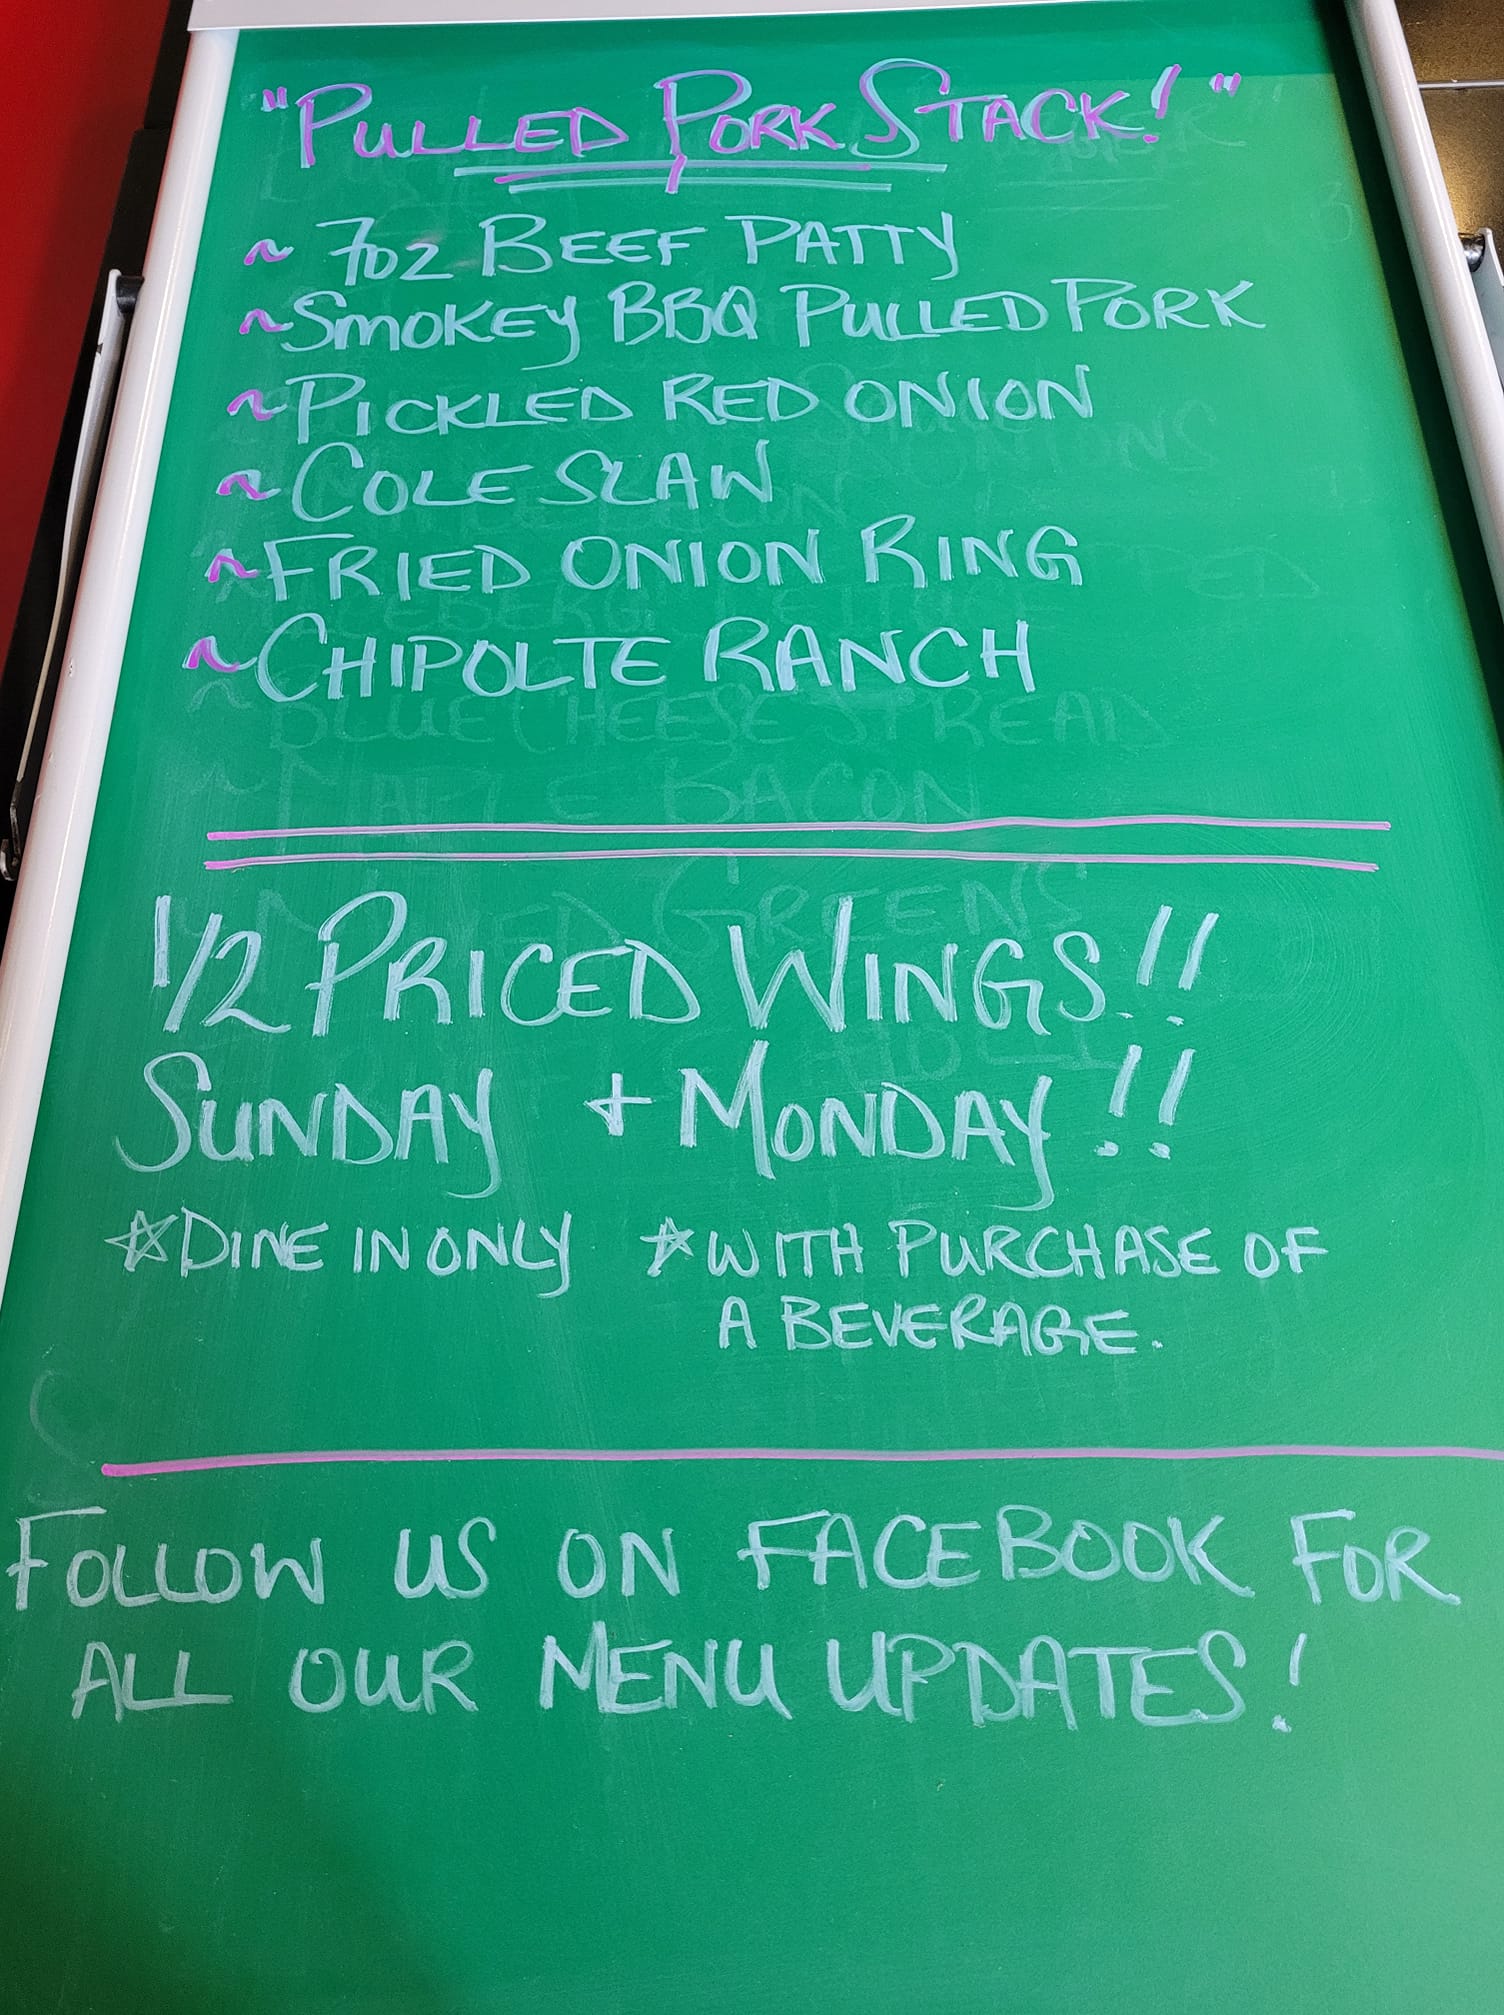 "PULLED PORK STACK!"
~ 7oz BEEF PATTY
~ SMOKEY BBQ PULLED PORK
~ PICKLED RED ONION
~ COLE SLAW
~ FRIED ONION RING
~ CHIPOLTE RANCH
BLUE CHEESE SPREAD
~ MAPLE BACON
GREENS
1/2 PRICED WINGS!!
SUNDAY + MONDAY!!
☆ DINE IN ONLY ☆ WITH PURCHASE OF
A BEVERAGE.
FOLLOW US ON FACEBOOK FOR
ALL OUR MENU UPDATES!